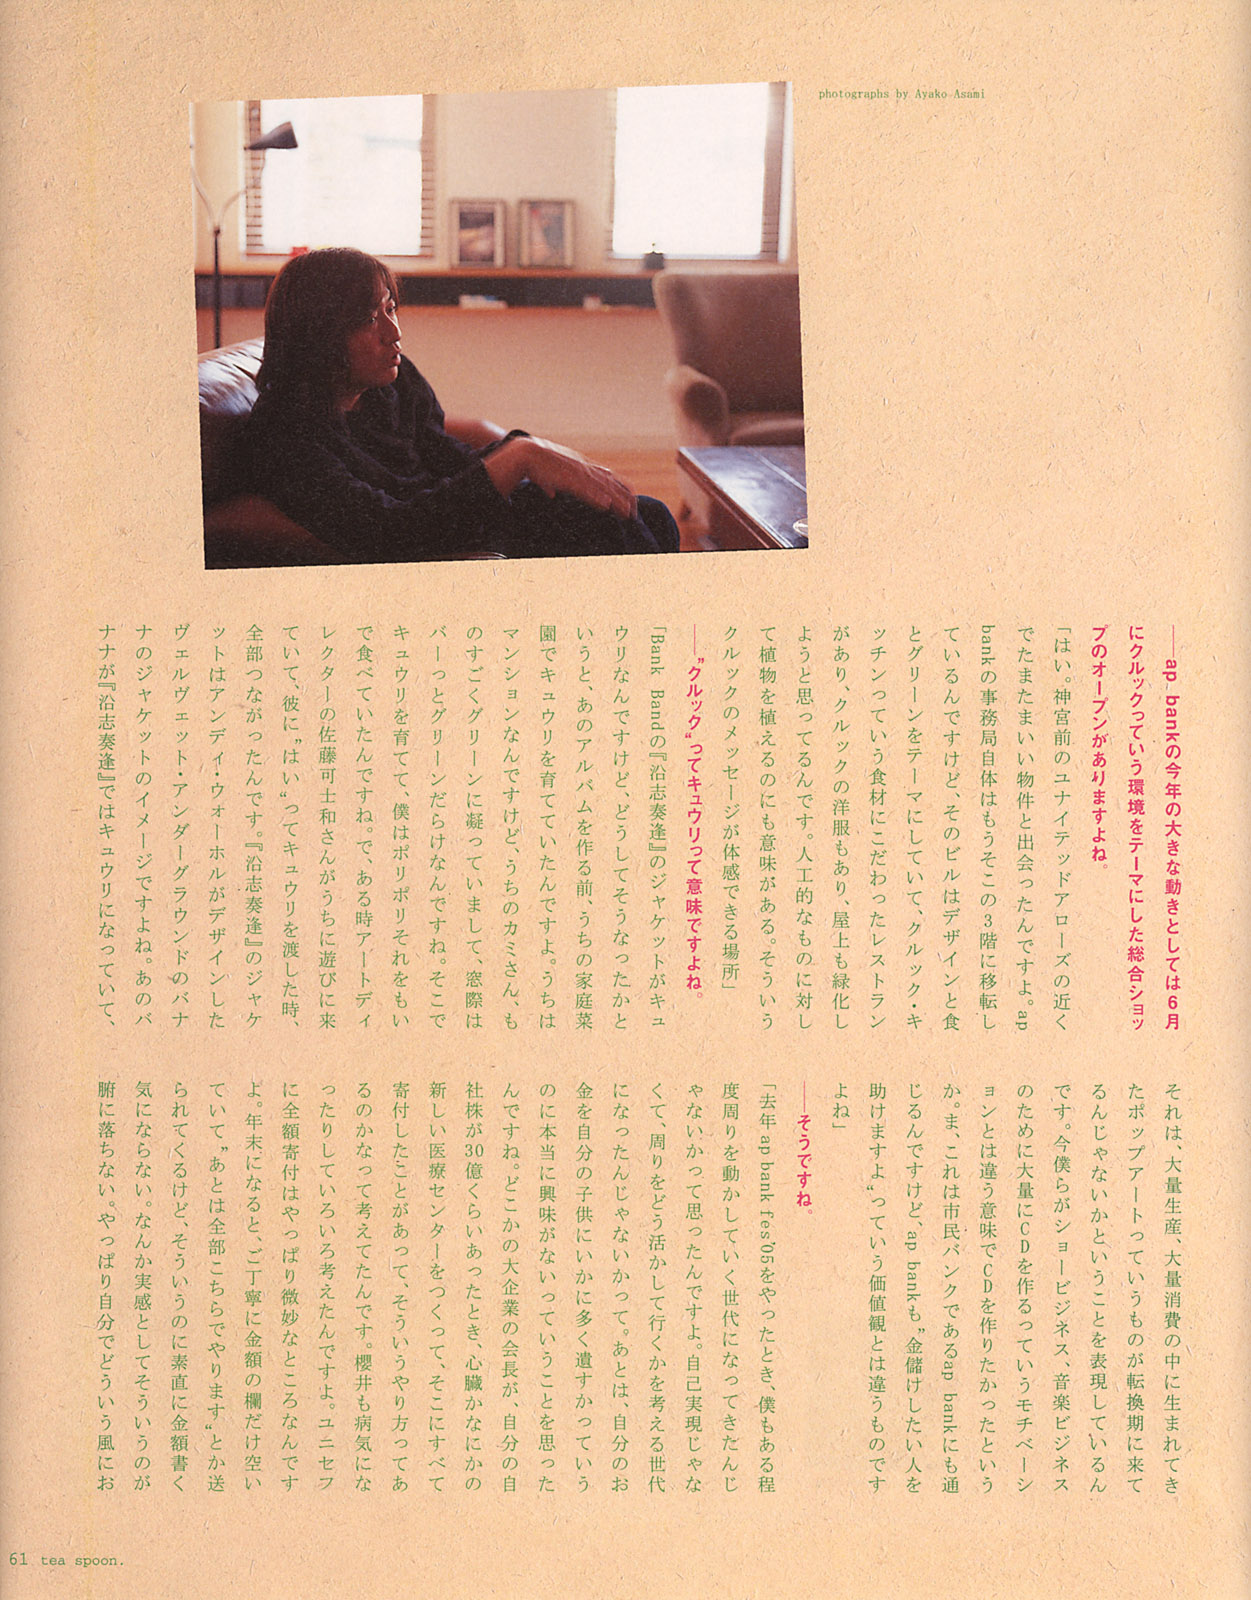 photographs by Ayako Asami
――ap bankの今年の大きな動きとしては6月
にクルックっていう環境をテーマにした総合ショッ
プのオープンがありますよね。
「はい。神宮前のユナイテッドアローズの近く
でたまたまいい物件と出会ったんですよ。ap
bankの事務局自体はもうそこの3階に移転し
ているんですけど、そのビルはデザインと食
とグリーンをテーマにしていて、クルック・キ
ッチンっていう食材にこだわったレストラン
があり、クルックの洋服もあり、屋上も緑化し
ようと思ってるんです。人工的なものに対し
て植物を植えるのにも意味がある。そういう
クルックのメッセージが体感できる場所」
――〝クルック〟ってキュウリって意味ですよね。
「Bank Bandの『沿志奏逢』のジャケットがキュ
ウリなんですけど、どうしてそうなったかと
いうと、あのアルバムを作る前、うちの家庭菜
園でキュウリを育てていたんですよ。うちは
マンションなんですけど、うちのカミさん、も
のすごくグリーンに凝っていまして、窓際は
バーっとグリーンだらけなんですね。そこで
キュウリを育てて、僕はポリポリそれをもい
で食べていたんですね。で、ある時アートディ
レクターの佐藤可士和さんがうちに遊びに来
ていて、彼に〝はい〟ってキュウリを渡した時、
全部つながったんです。『沿志奏逢』のジャケ
ットはアンディ・ウォーホルがデザインした
ヴェルヴェット・アンダーグラウンドのバナ
ナのジャケットのイメージですよね。あのバ
ナナが『沿志奏逢』ではキュウリになっていて、
それは、大量生産、大量消費の中に生まれてき
たポップアートっていうものが転換期に来て
るんじゃないかということを表現しているん
です。今僕らがショービジネス、音楽ビジネス
のために大量にCDを作るっていうモチベーシ
ョンとは違う意味でCDを作りたかったという
か。ま、これは市民バンクであるap bankにも通
じるんですけど、ap bankも〝金儲けしたい人を
助けますよ〟っていう価値観とは違うものです
よね」
――そうですね。
「去年ap bank fes'05をやったとき、僕もある程
度周りを動かしていく世代になってきたんじ
ゃないかって思ったんですよ。自己実現じゃな
くて、周りをどう活かして行くかを考える世代
になったんじゃないかって。あとは、自分のお
金を自分の子供にいかに多く遺すかっていう
のに本当に興味がないっていうことを思った
んですね。どこかの大企業の会長が、自分の自
社株が30億くらいあったとき、心臓かなにかの
新しい医療センターをつくって、そこにすべて
寄付したことがあって、そういうやり方ってあ
るのかなって考えてたんです。櫻井も病気にな
ったりしていろいろ考えたんですよ。ユニセフ
に全額寄付はやっぱり微妙なところなんです
よ。年末になると、ご丁寧に金額の欄だけ空い
ていて〝あとは全部こちらでやります〟とか送
られてくるけど、そういうのに素直に金額書く
気にならない。なんか実感としてそういうのが
腑に落ちない。やっぱり自分でどういう風にお
61 tea spoon.